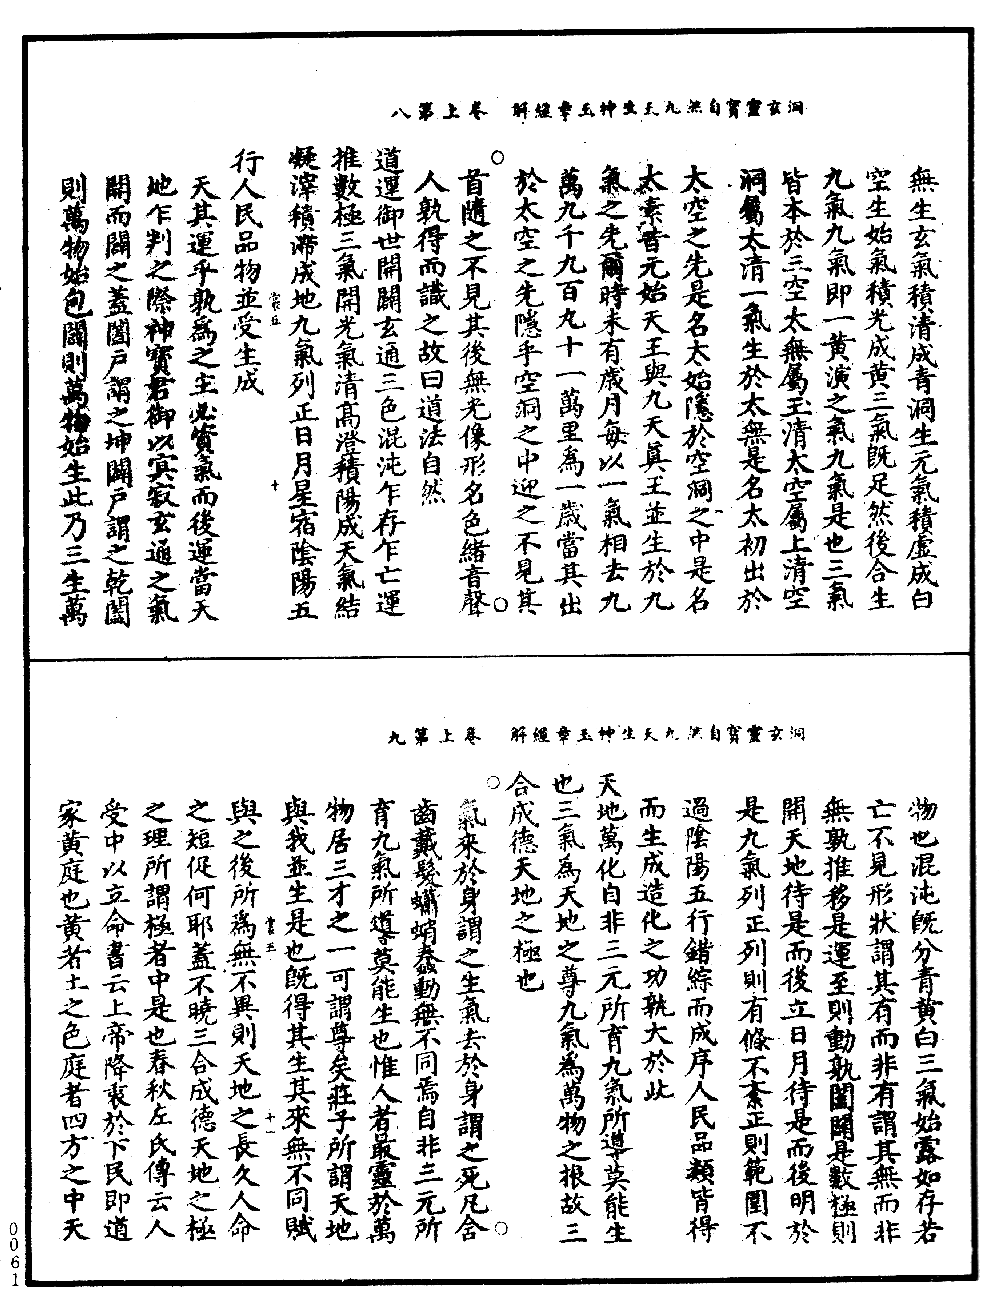 洞玄靈寶自然九天生神玉章經解　卷上第八
無生玄氣積清成青洞生元氣積虛成白
空生始氣積光成黃三氣既足然後合生
九氣九氣即一黃演之氣九氣是也三氣
皆本於三空太無屬玉清太空屬上清空
洞屬太清一氣生於太無是名太初出於
太空之先是名太始隱於空洞之中是名
太素昔元始天王與九天真王並生於九
氣之先爾時未有歲月每以一氣相去九
萬九千九百九十一萬里為一歲當其出
於太空之先隱乎空洞之中迎之不見其
首隨之不見其後無光像形名色緒音聲
人孰得而識之故曰道法自然
道運御世開闢玄通三色混沌乍存乍亡運
推數極三氣開光氣清高澄積陽成天氣結
凝滓積滯成地九氣列正日月星宿陰陽五
行人民品物並受生成
天其運乎孰為之主必資氣而後運當天
地乍判之際神寶君御以寂寂玄通之氣
闢而闔之蓋闔戶謂之坤闢戶謂之乾闔
則萬物始包闢則萬物始生此乃三生萬
洞玄靈寶自然九天生神玉章經解　卷上第九
物也混沌既分青黃白三氣始露如存若
亡不見形狀謂其有而非有謂其無而非
無孰推移是運至則動孰闔闢是數極則
開天地待是而後立日月待是而後明於
是九氣列正列則有條不紊正則範圍不
過陰陽五行錯綜而成序人民品類皆得
而生成造化之功孰大於此
天地萬化自非三元所育九氣所導莫能生
也三氣為天地之尊九氣為萬物之根故三
合成德天地之極也
氣來於身謂之生氣去於身謂之死凡含
齒戴髮蠕蛸蠢動無不同焉自非三元所
育九氣所導莫能生也惟人者最靈於萬
物居三才之一可謂尊矣莊子所謂天地
與我並生是也既得其生其來無不同賦
與之後所為無不異則天地之長久人命
之短促何耶蓋不曉三合成德天地之極
之理所謂極者中是也春秋左氏傳云人
受中以立命書云上帝降衷於下民即道
家黃庭也黃者土之色庭者四方之中天
0061